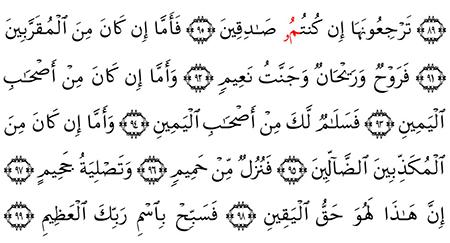 ﴿٨٩﴾ تَرْجِعُونَهَا إِن كُنتُمُۥ صَـٰدِقِينَ ﴿٩٠﴾ فَأَمَّا إِن كَانَ مِنَ ٱلْمُقَرَّبِينَ
﴿٩١﴾ فَرَوْحٌ وَرَيْحَانٌ وَجَنَّتُ نَعِيمٍ ﴿٩٢﴾ وَأَمَّا إِن كَانَ مِنْ أَصْحَـٰبِ
ٱلْيَمِينِ ﴿٩٣﴾ فَسَلَـٰمٌ لَّكَ مِنْ أَصْحَـٰبِ ٱلْيَمِينِ ﴿٩٤﴾ وَأَمَّا إِن كَانَ مِنَ
ٱلْمُكَذِّبِينَ ٱلضَّآلِّينَ ﴿٩٥﴾ فَنُزُلٌ مِّنْ حَمِيمٍ ﴿٩٦﴾ وَتَصْلِيَةُ جَحِيمٍ ﴿٩٧﴾
إِنَّ هَـٰذَا لَهُوَ حَقُّ ٱلْيَقِينِ ﴿٩٨﴾ فَسَبِّحْ بِٱسْمِ رَبِّكَ ٱلْعَظِيمِ ﴿٩٩﴾